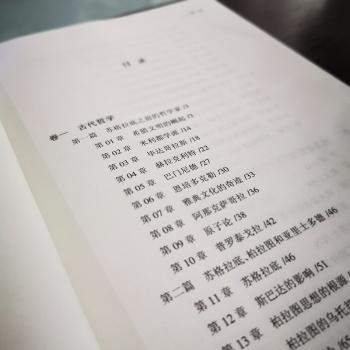 目 录
卷一 古代哲学
第一篇 苏格拉底之前的哲学家 /3
第 01 章 希腊文明的崛起 /3
第 02 章 米利都学派 /14
第 03 章 毕达哥拉斯 /18
第 04 章 赫拉克利特 /22
第 05 章 巴门尼德 /27
第 06 章 恩培多克勒 /30
第 07 章 雅典文化的奇迹 /33
第 08 章 阿那克萨哥拉 /36
第 09 章 原子论 /38
第 10 章 普罗泰戈拉 /42
第二篇 苏格拉底、柏拉图和亚里士多德 /46
第 11 章 苏格拉底 /46
第 12 章 斯巴达的影响 /51
第 13 章 柏拉图思想的根源
章 柏拉图的乌托